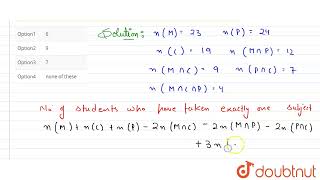 Option1 6
Option2 9
Option3 7
Option4 none of these
Solution:
n(M) = 23 n(P) = 24
n(C) = 19 n(M∩P) = 12
n(M∩C) = 9 n(P∩C) = 7
n(M∩P∩C) = 4
No. of students who have taken exactly one subject
n(M) + n(C) + n(P) - 2n(M∩C) - 2n(M∩P) - 2n(P∩C)
+ 3n(
doubtnut